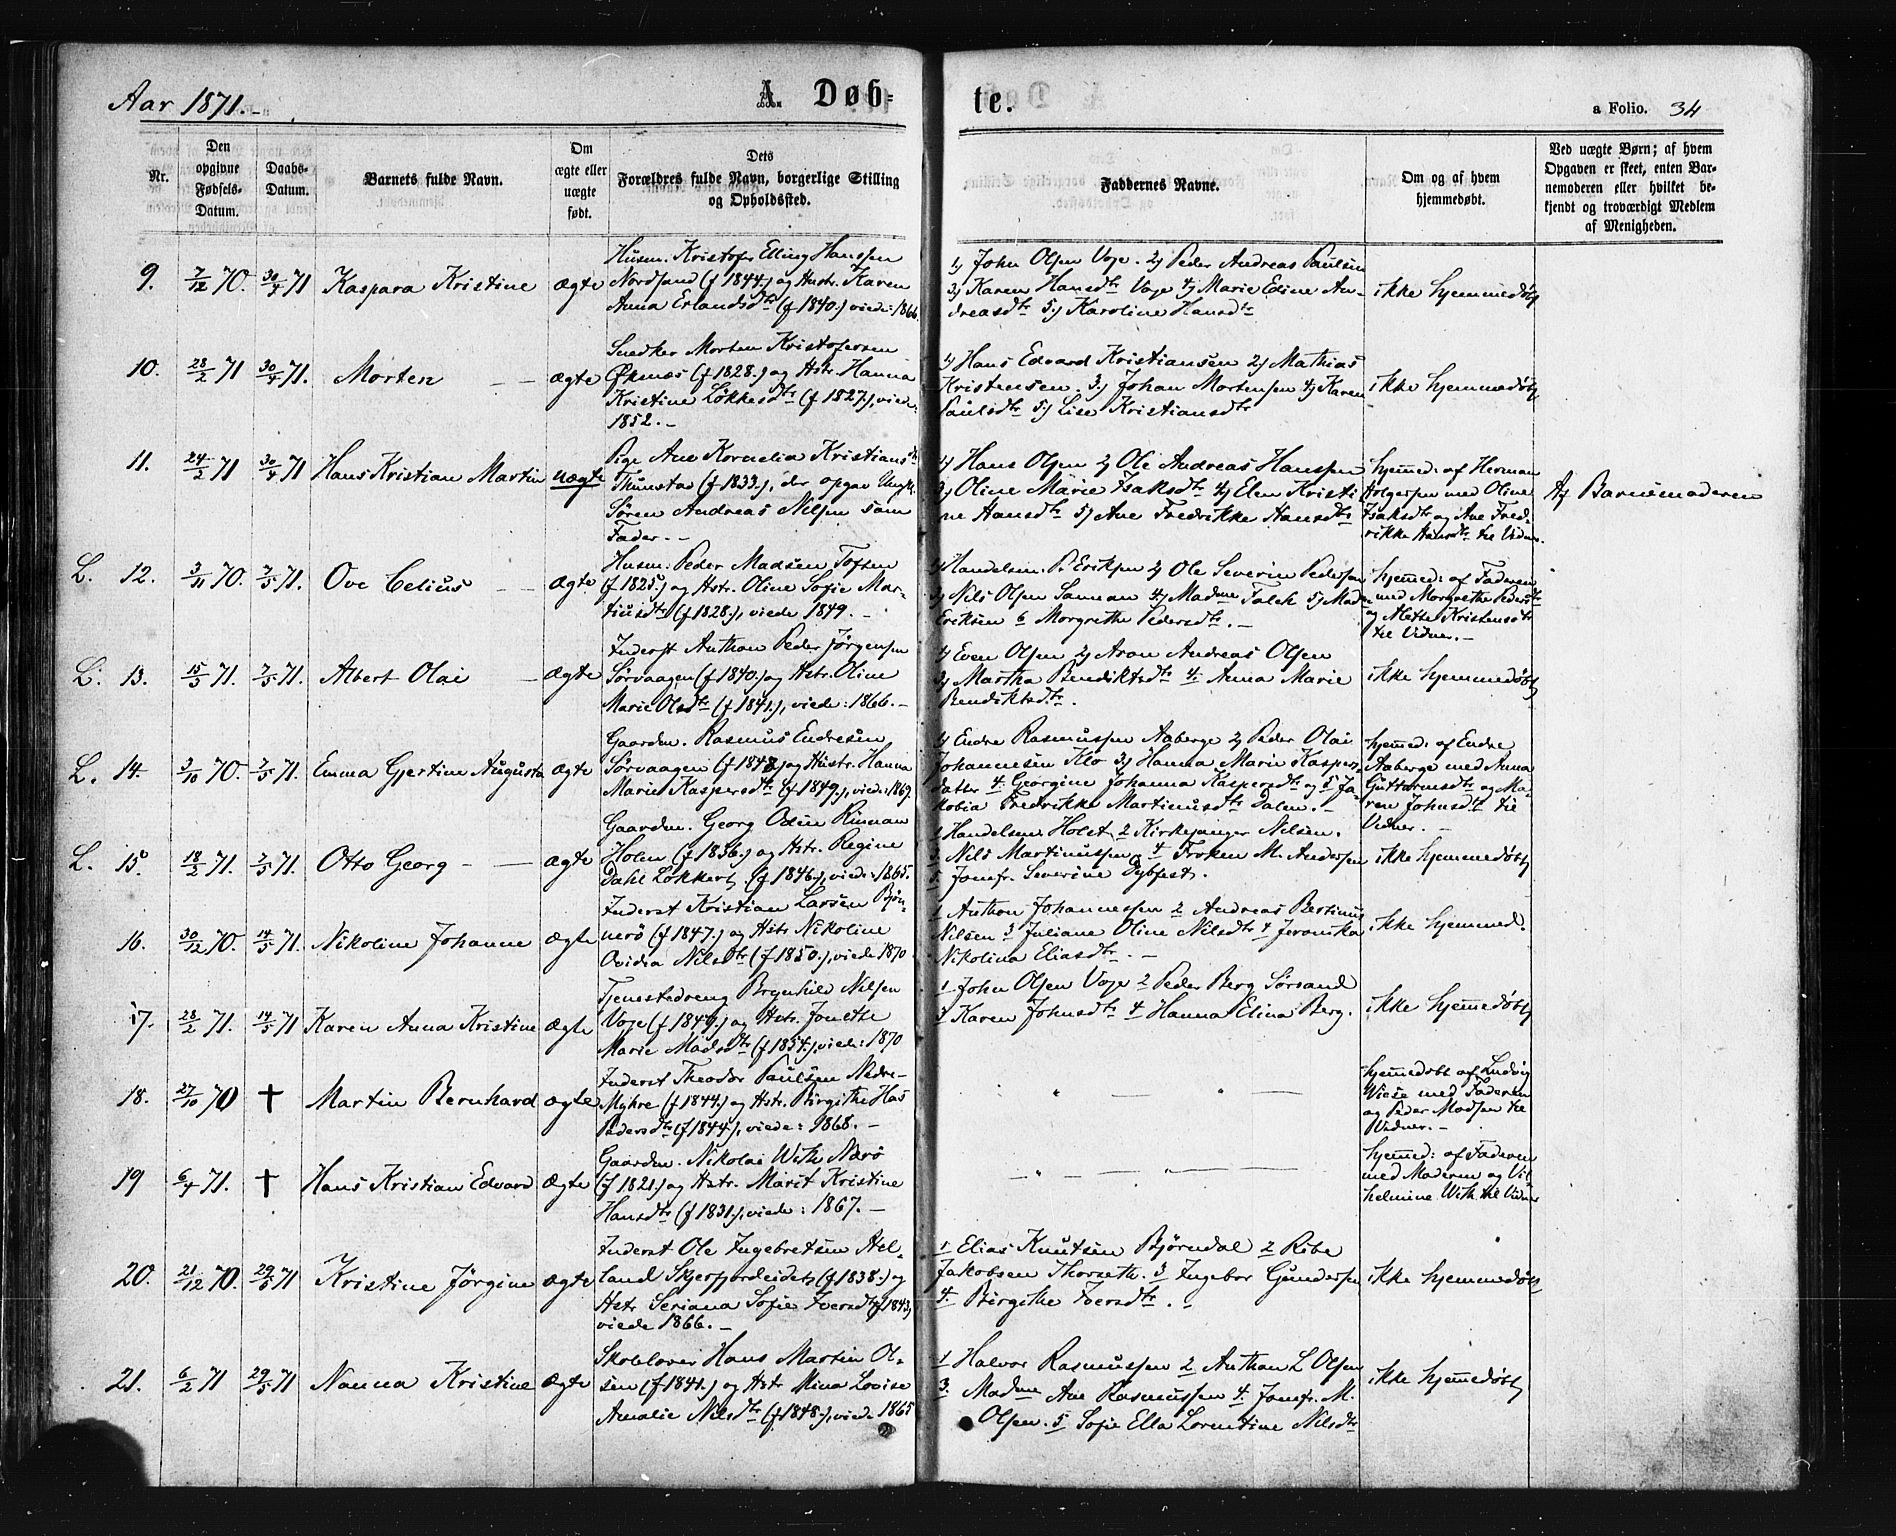 Aar 1871.
A Døb-
te.
a Folio. 34
Nr.
Den opgivne Fødsels-Datum.
Daabs-Datum.
Barnets fulde Navn.
Om ægte eller uægte født.
Dets Forældres fulde Navn, borgerlige Stilling og Opholdssted.
Faddernes Navne.
Om og af hvem hjemmedøbt.
Ved uægte Børn; af hvem Opgaven er skeet, enten Barnemoderen eller hvilket bekjendt og troværdigt Medlem af Menigheden.
9. 7/12 70. 30/4 71 Kaspara Kristine ægte
Husm. Kristofer Elling Hanssen
Nordsand (f 1844.) og Hustr. Karen
Anna Erlandsdtr (f 1840.) viede: 1866.
1) John Olsen Voje. 2) Peder Andreas Paulsen
3) Karen Hansdtr Voje 4) Marie Edine An-
dreasdtr 5.) Karoline Hansdtr
ikke hjemmedøbt
10. 28/2 71 30/4 71. Morten ægte
Snedker Morten Kristofersen
Øksnæs (f 1828.) og Hstr. Hanna
Kristine Løkkesdtr (f 1827.), viede:
1852.
1) Hans Edvard Kristiansen 2) Mathias
Kristensen. 3.) Johan Mortensen 4) Karen
Paulsdtr 5.) Lise Kristiansdtr
ikke hjemmedøbt
11. 24/2 71 30/4 71 Hans Kristian Martin uægte
Pige Ane Kornelia Kristiansdtr
Tunstad (f 1833.), der opgav Ungk.
Søren Andreas Nilsen som
Fader.
1) Hans Olsen 2) Ole Andreas Hanssen
3) Oline Marie Isaksdtr 4) Elen Kristi
ne Hansdtr 5) Ane Fredrikke Hansdtr
hjemmed: af Herman
Holgersen med Oline
Isaksdtr og Ane Fred-
rikke Hansdtr til Vidner.
Af Barnemoderen
L. 12. 3/11 70. 7/5 71. Ove Celius ægte
Husm. Peder Madsen Toften
(f 1825) og Hstr. Oline Sofie Mar-
tinsdtr (f 1828.), viede 1849.
1) Handelsm. P. Eriksen 2) Ole Severin Pedersen
3) Nils Olsen Sannan 4) Madme Falch 5) Madme
Eriksen 6 Morgrethe Pedersdtr.
hjemmed: af Faderen
med Morgrethe Pedersdtr
og Mette Kristensdtr
til Vidner.
L. 13. 15/3 71. 7/5 71. Albert Olai ægte
Inderst Anthon Peder Jørgensen
Sørvaagen (f 1840.) og Hstr. Oline
Marie Olsdtr (f 1841.), viede: 1866.
1) Even Olsen 2) Aron Andreas Olsen
3) Martha Bendiktsdtr 4. Anna Marie
Bendiktsdtr.
ikke hjemmedøbt
L. 14 3/10 70. 7/5 71. Emma Gjertine Augusta ægte
Gaardm. Rasmus Endresen
Sørvaagen (f 1848) og Hustr. Hanna
Marie Kaspersdtr (f 1849.), viede: 1869.
1) Endre Rasmussen Aaberge 2) Peder Olai
Johannesen Klo 3) Hanna Marie Kaspers-
datter 4. Georgine Johanna Kaspersdtr og 5 Ja-
kobia Fredrikke Martinusdtr Dalen.
hjemmed: af Endre
Aaberge med Anna
Guttormsdtr og Ma-
ren Johnsdtr til
Vidner.
L. 15. 18/2 71. 7/5 71. Otto Georg ægte
Gaardm. Georg Odin Rinnan
Holen (f 1836.) og Hstr. Regine
Dahl Løkkert (f 1846.), viede: 1865.
1 Handelsm. Holst 2 Kirkesanger Nilsen.
3. Nils Martinussen 4 Frøken M. Andersen
5. Jomfr. Severine Dybfest.
ikke hjemmedøbt
16. 30/12 70. 14/5 71. Nikoline Johanne ægte
Inderst Kristian Larsen Bjørn-
nerø (f 1847.) og Hstr Nikoline
Ovidia Nilsdtr (f 1850.), viede 1870.
1 Anthon Johannessen 2 Andreas Bertinus
Nilsen 3 Juliane Oline Nilsdtr 4 Jeronika
Nikolina Eliasdtr.
ikke hjemmed.
17. 28/2 71. 14/5 71 Karen Anna Kristine ægte
Tjenestedreng Brynhild Nilsen
Voje (f 1849.) og Hstr. Jonette
Marie Madsdtr (f 1854.), viede: 1870
1 John Olsen Voje 2 Peder Berg Sørsand
3 Karen Johnsdtr 4 Hanna Elina Berg.
ikke hjemmedøbt
18. 27/10 70 † Martin Bernhard ægte
Inderst Theodor Paulsen Nedre-
Myhre (f 1844.) og Hstr. Birgithe Has
Pedersdtr (f 1844.), viede: 1868.
hjemmedøbt af Ludvig
Wiese med Faderen
og Peder Madsen til
Vidner.
19 6/4 71. † Hans Kristian Edvard ægte
Gaardm. Nikolai With Nærø
(f 1821.) og Hstr. Marit Kristine
Hansdtr (f 1831.), viede: 1867.
hjemmed: af Faderen
med Moderen og Vil
helmine With til Vidner
20. 21/12 70. 29/5 71 Kristine Jørgine ægte
Inderst Ole Ingebretsen Hel-
land Skjerfjordeidet (f 1838.) og
Hstr Seriana Sofie Iversdtr (f 1843)
viede 1866.
1 Elias Knutsen Bjørndal 2 Ribe
Jakobsen Thorseth. 3 Ingebor Gundersen
4. Birgithe Iversdtr.
ikke hjemmedøbt
21. 6/2 71 29/5 71 Nanna Kristine ægte
Skolelærer Hans Martin Ol-
sen (f 1841.) og Hstr Mina Lovise
Amalie Nilsdtr (f 1848.), viede 1865
1 Halvor Rasmussen 2 Anthon L Olsen
3. Madme Ane Rasmussen 4. Jomfr. M.
Olsen. 5 Sofie Ella Lorentine Nilsdtr
ikke hjemmedøbt